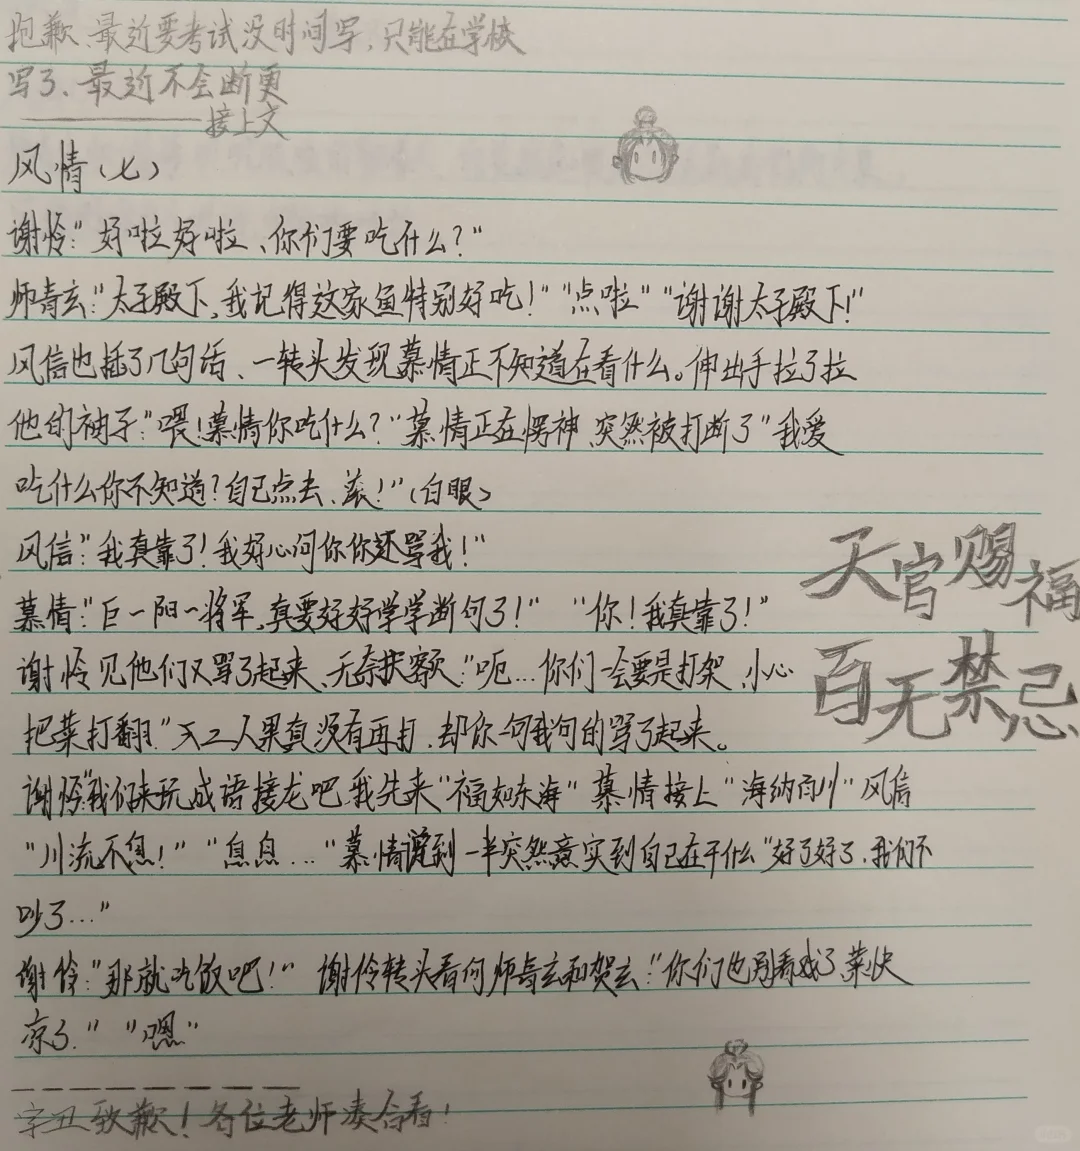 抱歉、最近要考试没时间写，只能在学校
写了、最近不会断更
接上文
风情（七）
谢怜：“好啦好啦、你们要吃什么？”
师青玄：“太子殿下，我记得这家鱼特别好吃！”“点啦”“谢谢太子殿下！”
风信也插了几句话、一转头发现慕情正不知道在看什么。伸出手拉了拉
他的袖子：“喂！慕情你吃什么？”慕情正在愣神，突然被打断了“我爱
吃什么你不知道？自己点去、滚！”（白眼）
风信：“我真靠了！我好心问你你还骂我！”
慕情：“巨一阳一将军，真要好好学学断句了！”“你！我真靠了！”
谢怜见他们又骂了起来、无奈扶额：“呃…你们一会要是打架，小心
把菜打翻。”不二人果真没有再打，却你一句我句的骂了起来。
谢怜“我们来玩成语接龙吧，我先来“福如东海”慕情接上“海纳百川”风信
“川流不息！”“息息…“慕情说到一半突然意实到自己在干什么“好了好了，我们不
吵了…”
谢怜：“那就吃饭吧！”谢怜转头看向师青玄和贺玄：“你们也别看戏了菜快
凉了。”“嗯”
字丑致歉！各位老师凑合看！
天官赐福
百无禁忌